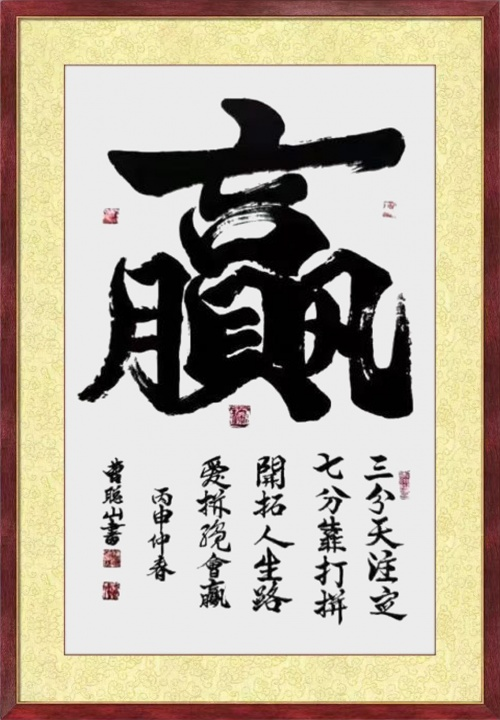 贏
三分天注定
七分靠打拼
開拓人生路
愛拼纔會贏
丙申仲春
曹聪山書